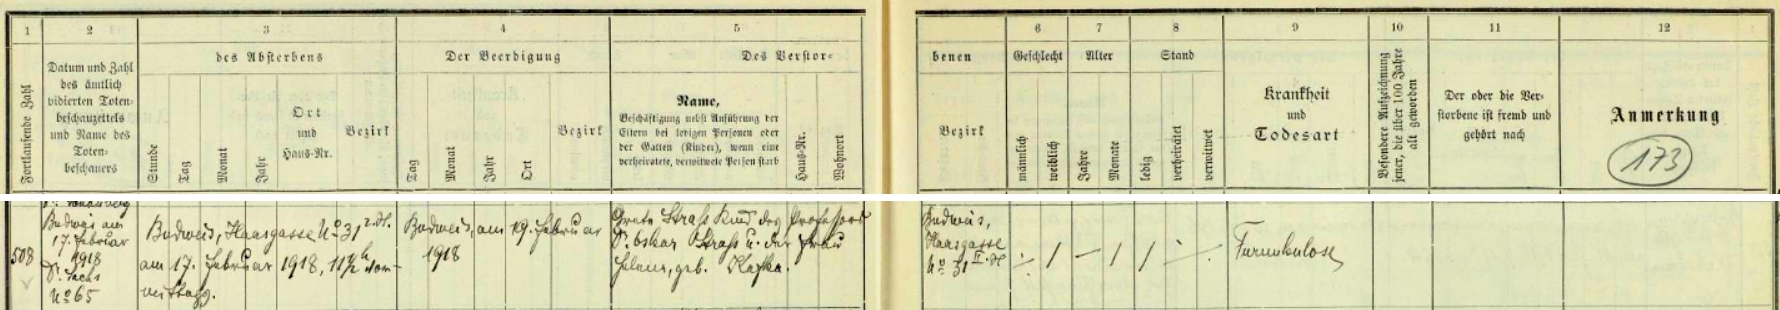 1 2 3 4 5
6 7 8 9 10 11 12
Fortlaufende Zahl
Datum und Zahl
des ämtlich
vidierten Toten-
beschauzettels
und Name des
Toten-
beschauers
des Absterbens
Stunde
Tag
Monat
Jahr
Ort
und
Haus-Nr.
Bezirk
Der Beerdigung
Tag
Monat
Jahr
Ort
Bezirk
Des Verstor-
Name,
Beschäftigung nebst Anführung der
Eltern bei ledigen Personen oder
der Gatten (Kinder), wenn eine
verheiratete, verwitwete Person starb
Haus-Nr.
Wohnort
benen
Bezirk
Geschlecht
männlich
weiblich
Alter
Jahre
Monate
Stand
ledig
verheiratet
verwitwet
Krankheit
und
Todesart
Besondere Aufzeichnung
jener, die über 100 Jahre
alt geworden
Der oder die Ver-
storbene ist fremd und
gehört nach
Anmerkung
173
508
Budweis am
17. Februar
1918
Dr. Sachs
No 65
Budweis, Haasgasse No 31
am 17. Februar 1918, 11 1/2 h vor-
mittags.
Budweis, am 19. Februar
1918
Grete Straß Kind des Professors
Dr. Oskar Straß u. der Frau
Helene, geb. Kafka.
Budweis,
Haasgasse
No 31 II. St
÷ / — / / ÷ ÷
Furunkulose